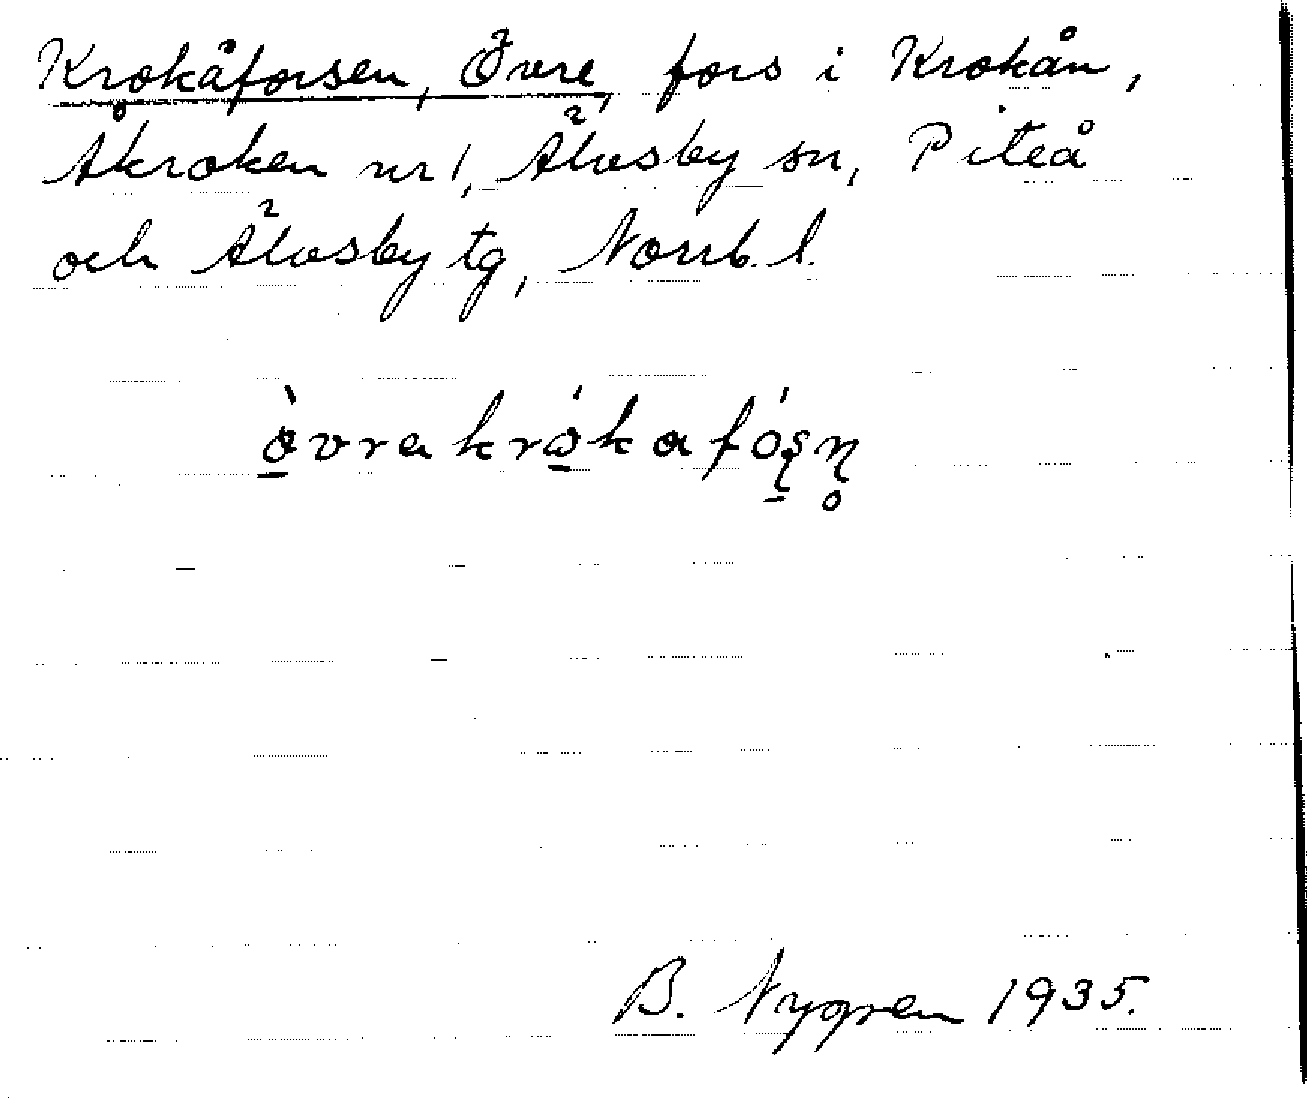 Krokåforsen, Övre, fors i Krokån,
Åkroken nr 1, Älvsby sn, Piteå
och Älvsby tg, Norrb. l.
ò̱vrakró̱kafó̱ʂɳ̥
B. Nygren 1935.